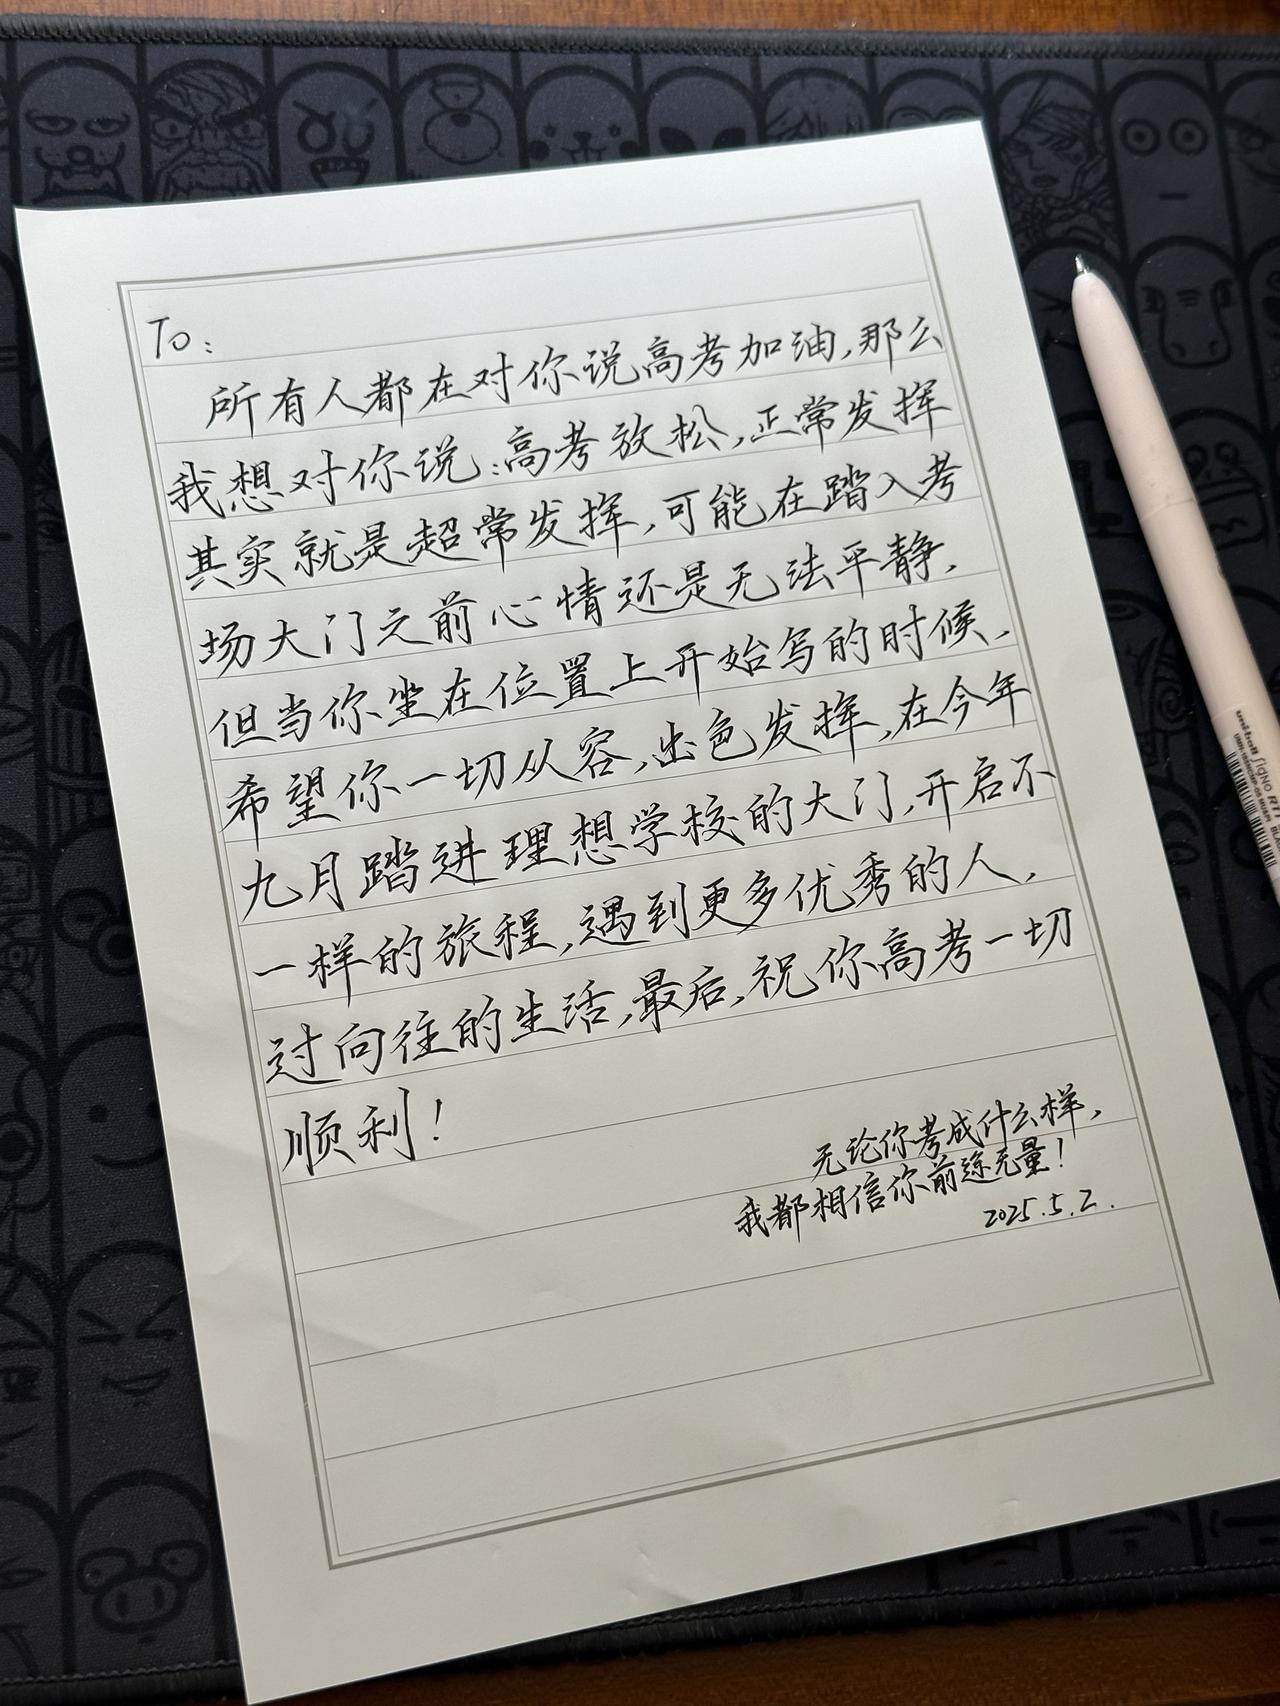 To:
所有人都在对你说高考加油,那么
我想对你说:高考放松,正常发挥
其实就是超常发挥,可能在踏入考
场大门之前心情还是无法平静.
但当你坐在位置上开始写的时候.
希望你一切从容,出色发挥,在今年
九月踏进理想学校的大门,开启不
一样的旅程,遇到更多优秀的人.
过向往的生活,最后,祝你高考一切
顺利!
无论你考成什么样,
我都相信你前途无量!
2025.5.2.
uni-ball Signo RT1